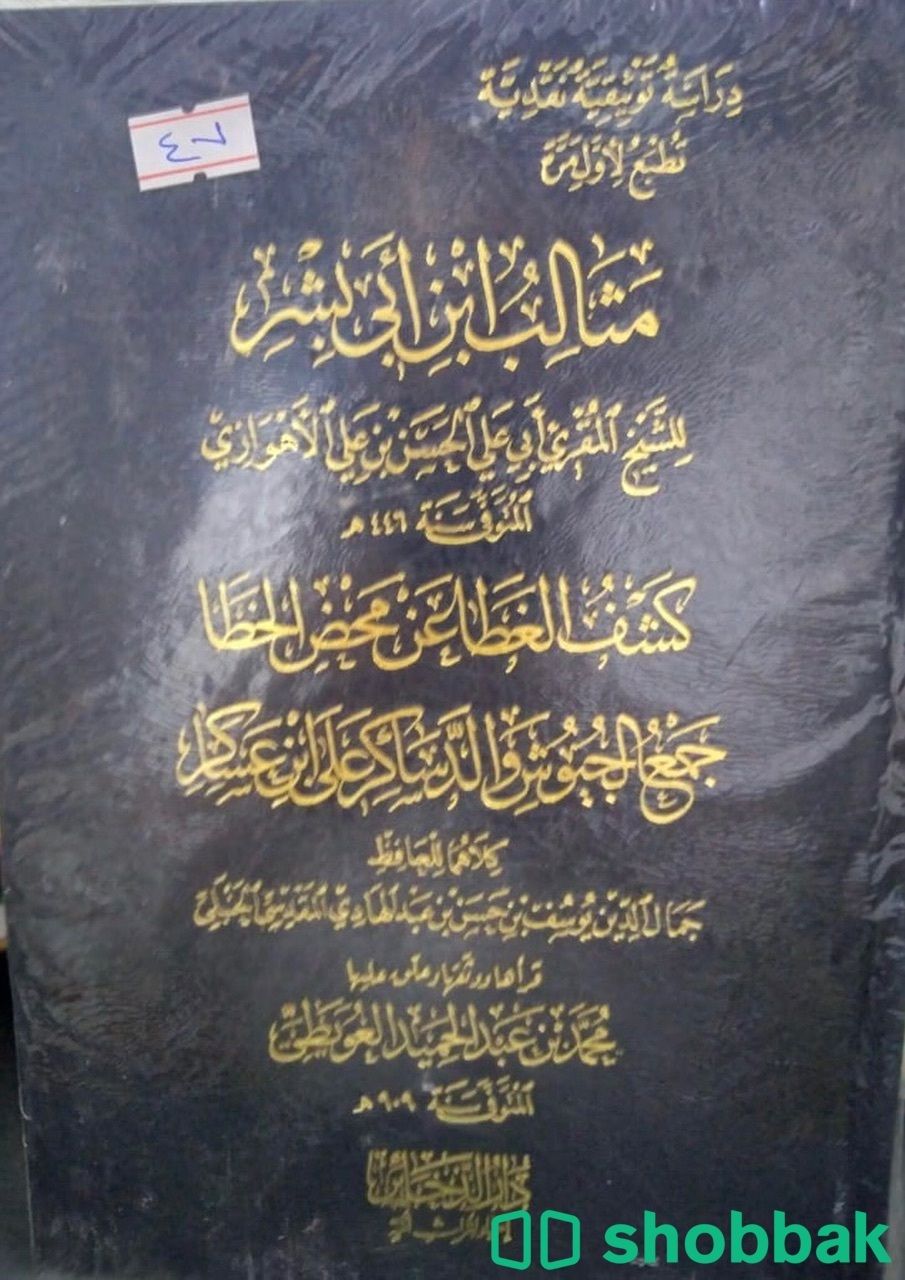 دِرَاسَةٌ تَوْثِيقِيَّةٌ نَقْدِيَّةٌ
تُطْبَعُ لِأَوَّلِ مَرَّةٍ
٤٧
مَثَالِبُ ابْنِ أَبِي بِشْرٍ
لِلشَّيْخِ الْمُقْرِئِ أَبِي عَلِيٍّ الْحَسَنِ بْنِ عَلِيٍّ الْأَهْوَازِيِّ
الْمُتَوَفَّى سَنَةَ ٤٤٦ هـ
كَشْفُ الْغَطَا عَنْ مَحْضِ الْخَطَا
جَمْعُ الْجُيُوشِ وَالدَّسَاكِرِ عَلَى ابْنِ عَسَاكِرِ
كِلَاهُمَا لِلْحَافِظِ
جَمَالِ الدِّيْنِ يُوسُفَ بْنِ حَسَنِ بْنِ عَبْدِ الْهَادِيْ الْمَقْدِسِيِّ الْحَنْبَلِيِّ
قرأها ووثقها وعلق عليها
مُحَمَّدُ بْنُ عَبْدِ الْحَمِيدِ الْعُوَيْطِيُّ
الْمُتَوَفَّى سَنَةَ ٩٠٩ هـ
دار الذخائر
shobbak